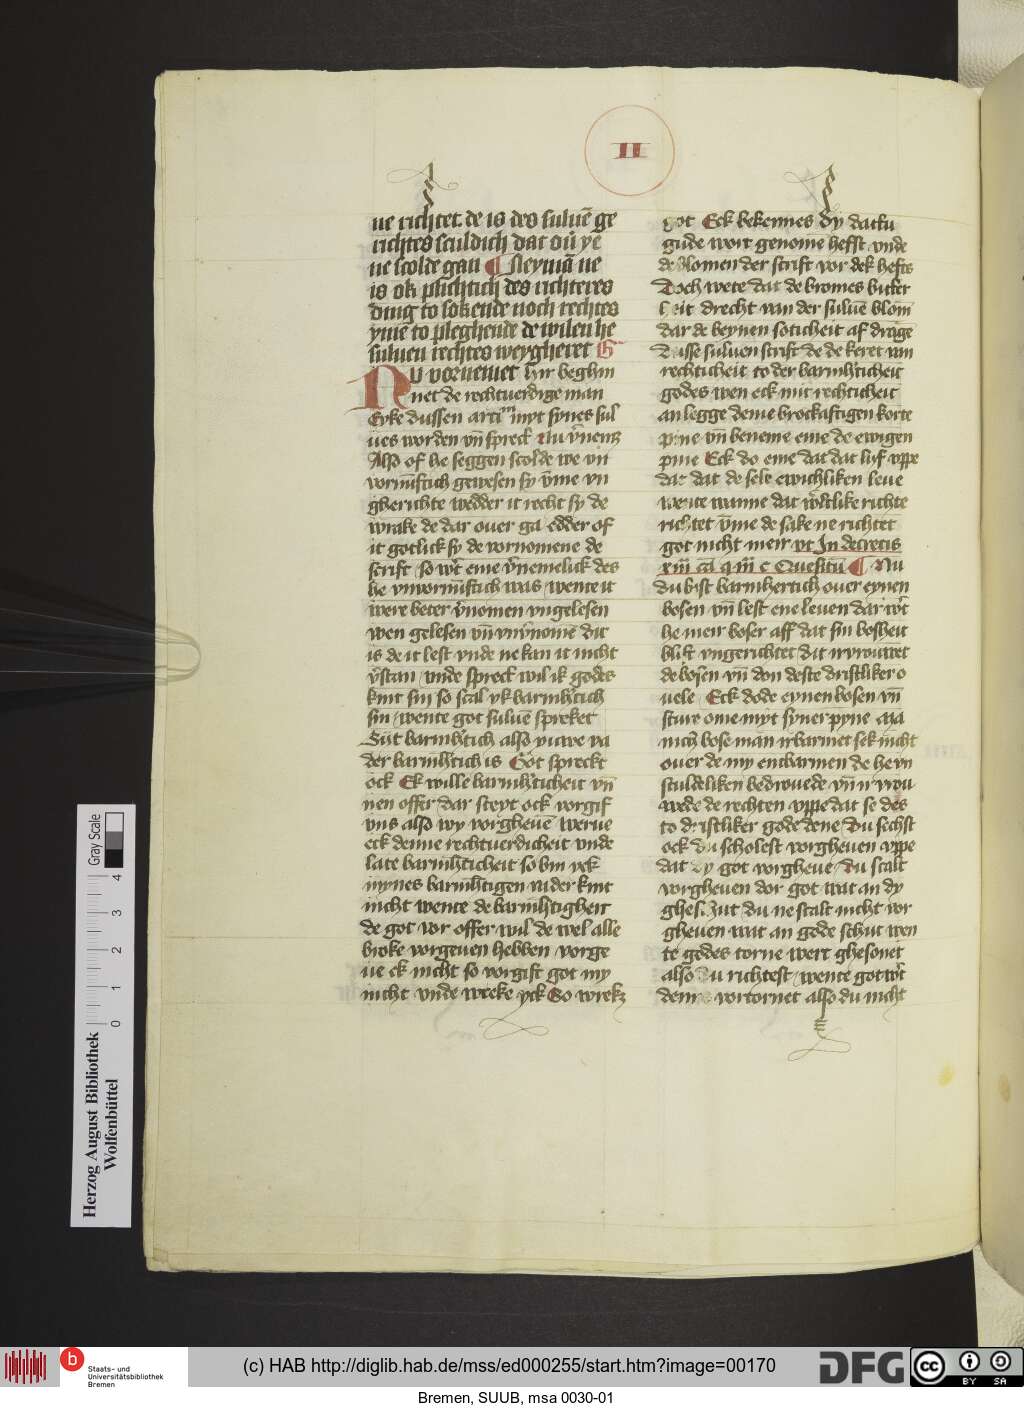 II
ne richtet. de is des suluē ge
richtes sculdich dat ou͛ ye
ne scolde gan ¶ Neymā ne
is ok plichtich des richteres
ding to sokende noch rechtes
ymē to pleghende de wilen he
suluen rechtes weygheret G
NU vornemet hir beghin
net de rechtuerdige man
Eyke dussen arti myt synes sul
ues worden vn̄ spreck Nu
Also of he seggen scolde we vn
vornūftich gewesen sy v̄me vn
gherichte wedder it recht sy de
wrake de dar ouer ga edder of
it gotlick sy de vornomene de
scrift so w͛t eme v͛nemelick des
he vnvornūftich was wente it
were beter v͛nomen vngelesen
wen gelesen vn̄ vnv͛nomē dit
is de it lest vnde ne kan it nicht
v͛stan vnde spreck wil ik godes
kint sin so scal yk barmh͛tich
sin wente got suluē spreket
Sūt barmh͛tich also yuwe va
der barmh͛tich is Got spreckt
ock Ek wille barmh͛ticheit vn̄
nen offer dar steyt ock vorgif
vns also wy vorgheuē werue
eck denne rechtuerdicheit vnde
late barmh͛ticheit so bin yck
mynes barmh͛tigen vader kint
nicht wente de barmh͛tigheit
de got vor offer wil de wel alle
broke vorgeuen hebben vorge
ue ek nicht so vorgift got my
nicht vnde wreke yck So wrekz
got Eck bekennes dy dattu
gude wort genome hefst vnde
de blomen der scrift vor dek hefts
Doch wete dat de bromes bitter
heit drecht van der suluē blom̄
dar de beynen soticheit af drage
Dusse suluen scrift de de keret van
rechticheit to der barmh͛ticheit
godes wen eck mit rechticheit
an legge deme brockaftigen korte
pyne vn̄ beneme eme de ewigen
pine Eck do eme dat dat lyf vppe
dat dat de sele ewichliken leue
wente wanne dat w͛ltlike richte
richtet v̄me de sake ne richtet
got nicht meir vt In decretis
xiii ca q iii c Quesitū ¶ Nu
du bist barmhertich ouer eynen
bosen vn̄ lest ene leuen dar w͛t
he meir boser aff dat sin bosheit
blift vngerichtet dit
de bosen vn̄ don deste dristliker o
uele Eck dode eynen bosen vn̄
sture ome myt syner pyne
nich bose man irbarmet sek nicht
ouer de my enbarmen de heyn
sculdeliken bedrouede vn̄
wede de rechten vppe dat se des
to dristliker gode dene Du sechst
ock du scholest vorgheuen vppe
dat dy got vorgheue du scalt
vorgheuen vor got wat an dy
gheschut du ne scalt nicht vor
gheuen wat an gode schut wen
te godes torne wert ghesonet
also du richtest wente got w͛t
denne vortornet also du nicht